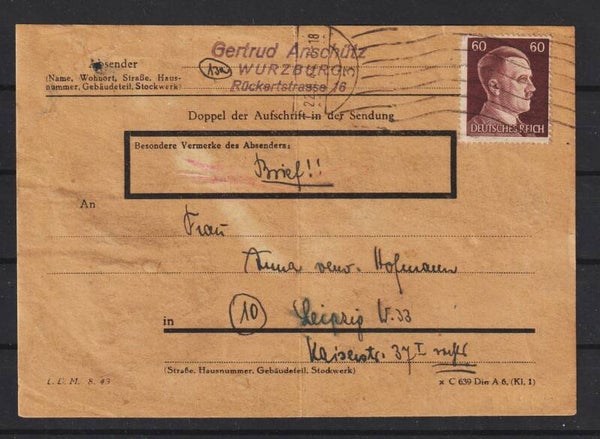 Absender
(Name, Wohnort, Straße, Haus-
nummer, Gebäudeteil, Stockwerk)
Gertrud Anschütz
(13a) WURZBURG
Rückertstrasse 16
60 60
DEUTSCHES REICH
Doppel der Aufschrift in der Sendung
Besondere Vermerke des Absenders:
Brief!!
An
Frau
Anna verw. Hofmann
in (10) Leipzig W.33
Kaiserstr. 37 I rechts
(Straße, Hausnummer, Gebäudeteil, Stockwerk)
L. L. M. 8. 43
x C 639 Din A 6, (Kl. 1)